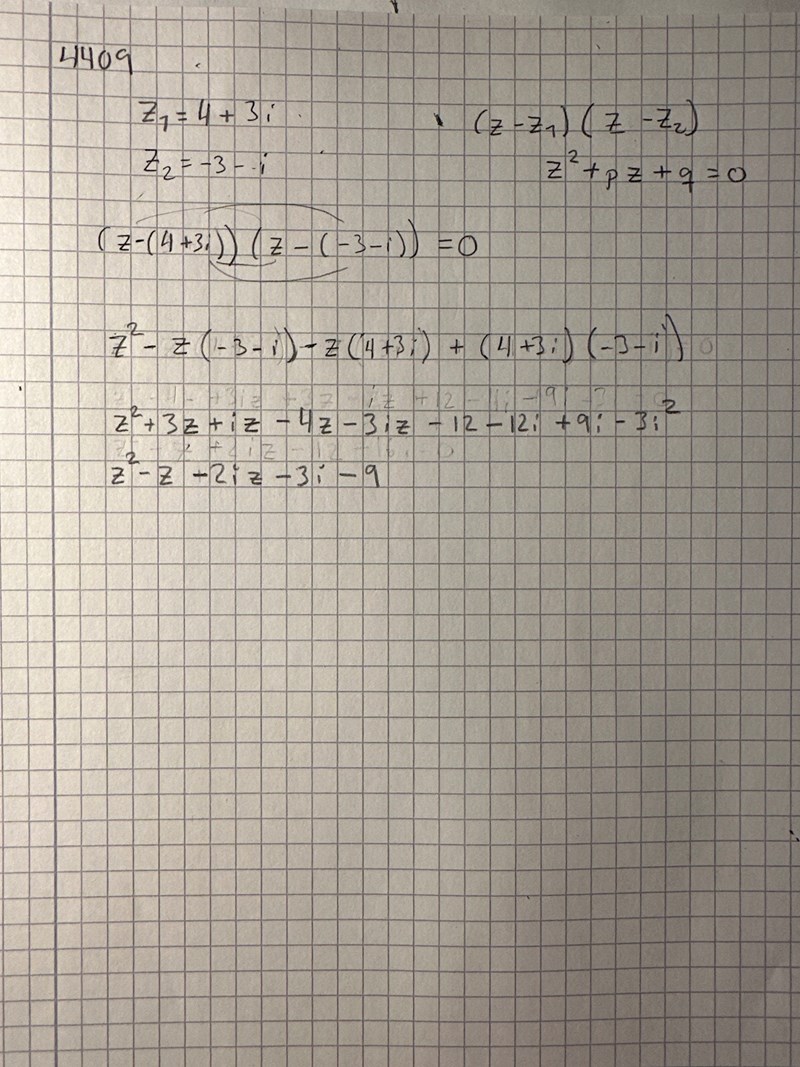 4409
z₁ = 4 + 3i
z₂ = -3 - i
(z - z₁)(z - z₂)
z² + pz + q = 0
(z-(4+3i))(z-(-3-i)) = 0
z² - z(-3-i) - z(4+3i) + (4+3i)(-3-i)
z² + 3z + iz - 4z - 3iz - 12 - 12i + 9i - 3i²
z² - z + 2iz - 3i - 9